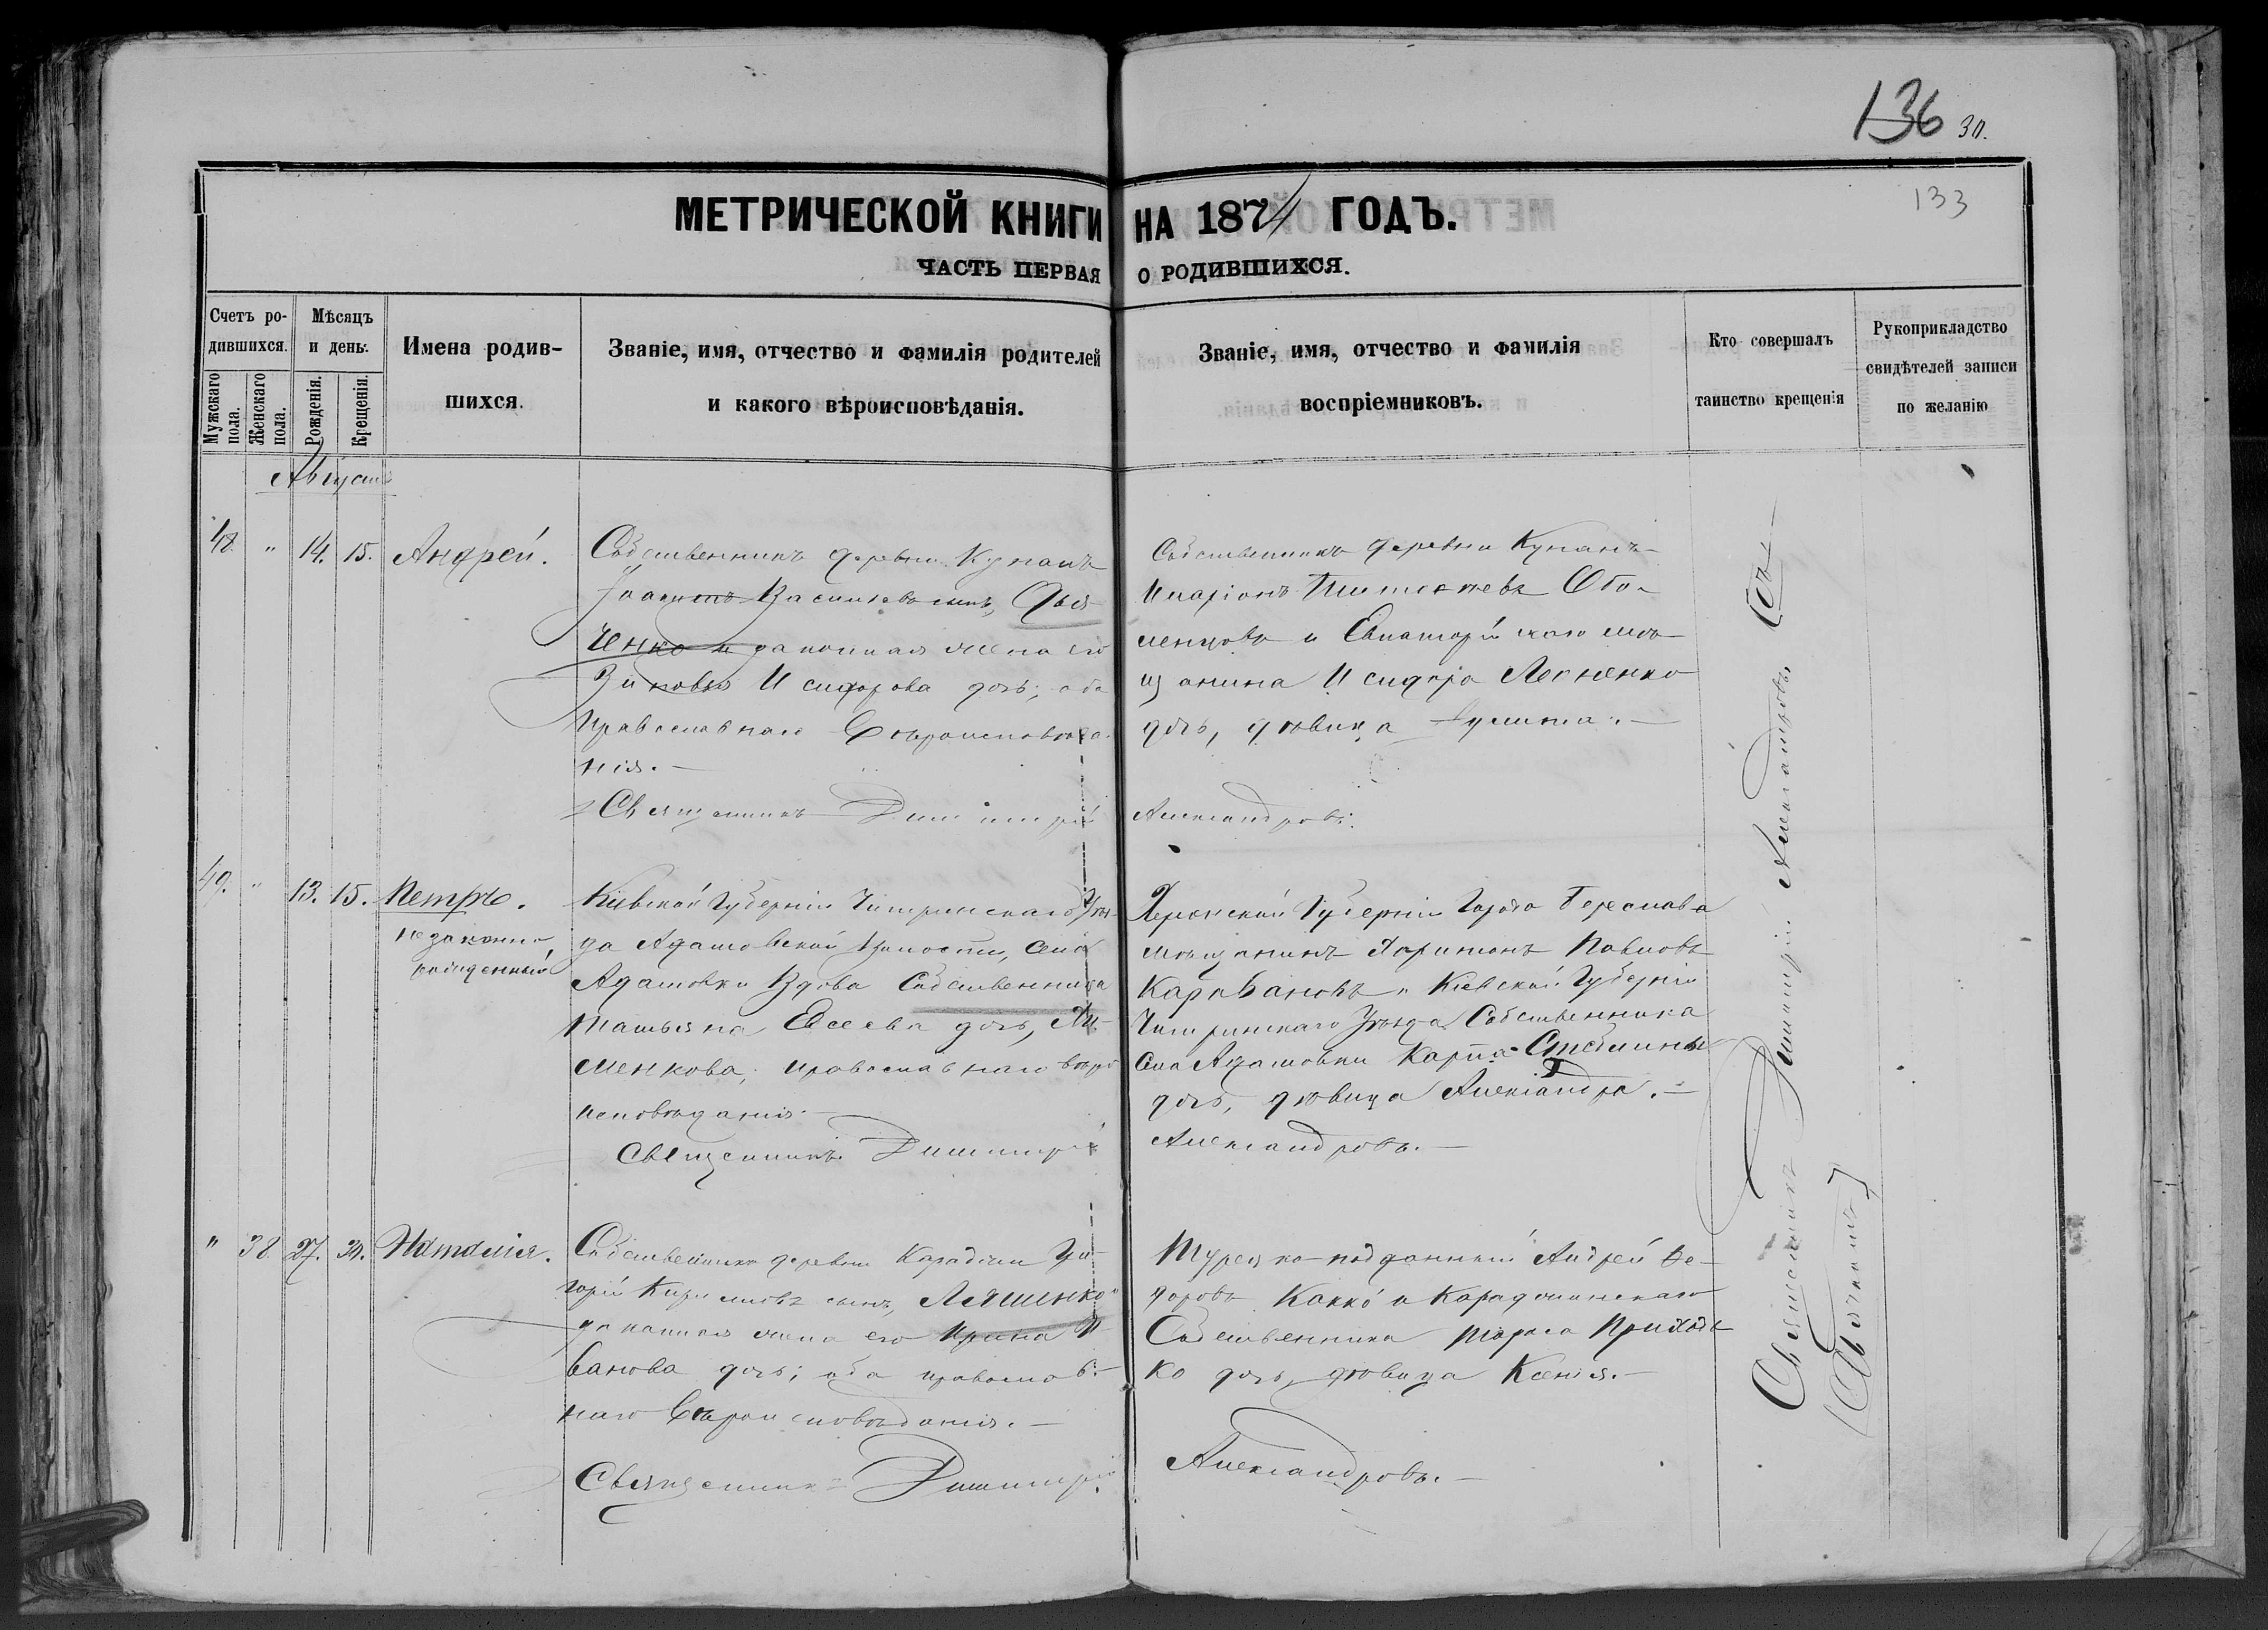 136 30.
133
МЕТРИЧЕСКОЙ КНИГИ НА 1874 ГОДЪ.
ЧАСТЬ ПЕРВАЯ О РОДИВШИХСЯ.
Счетъ ро-
дившихся.
Мужскаго пола.
Женскаго пола.
Мѣсяцъ
и день.
Рожденія.
Крещенія.
Имена родив-
шихся.
Званіе, имя, отчество и фамилія родителей
и какого вѣроисповѣданія.
Званіе, имя, отчество и фамилія
воспріемниковъ.
Кто совершалъ
таинство крещенія
Рукоприкладство
свидѣтелей записи
по желанію
Августъ
48. " 14. 15. Андрей.
Собственникъ деревни Кунанъ
Васильевъ сынъ, Дья-
ченко и законная жена его
Зиновья Исидорова дочь; оба
Православнаго вѣроисповѣда-
нія.
Священникъ Димитрій
Собственникъ деревни Кунанъ
Иларіонъ Тимоѳеевъ Обо-
ленцовъ и Евпаторійскаго мѣ-
щанина Исидора Леоненко
дочь, дѣвица
Александровъ.
49. " 13. 15. Петръ.
незаконно
рожденный
Кіевской Губерніи Чигиринскаго Уѣз-
да Адамовской Волости, села
Адамовки Вдова Собственника
Татьяна Евсеева дочь,
менкова, православнаго вѣро-
исповѣданія.
Священникъ Димитрій
Херсонской Губерніи Города Береслава
мѣщанинъ Харитонъ Павловъ
Карпановъ и Кіевской Губерніи
Чигиринскаго Уѣзда Собственника
Села Адамовки Карпа Стеблины
дочь, дѣвица Александра.
Александровъ.
" 38. 27. 30. Наталія.
Собственникъ деревни Караджи Гри-
горій Кириловъ сынъ, Ляшенко и
законная жена его Ирина И-
ванова дочь; оба православ-
наго вѣроисповѣданія.
Священникъ Димитрій
Турецко-подданный Андрей Ѳе-
доровъ Какко и Караджинскаго
Собственника Тараса Приходь-
ко дочь, дѣвица Ксенія.
Александровъ.
Священникъ Димитрій Александровъ съ